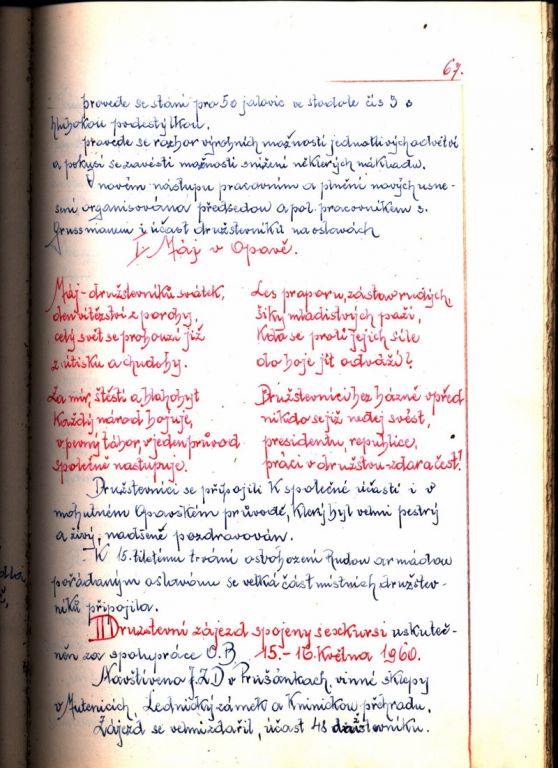 67.
provede se stání pro 50 jalovic ve stodole čís 3 s
hlubokou podestýlkou.
provede se rozbor výrobních možností jednotlivých odvětví
a pokusí se zavésti možnosti snížení některých nákladu.
V novém nástupu pracovním a plnění nových usne-
sení organisována předsedou a pol. pracovníkem s.
Grussmanem i účast družstevníků na oslavách
I. Máj v Opavě.
Máj - družstevníků svátek,
den vítězství z poroby,
celý svět se probouzí již
z útisku a chudoby.
Za mír, štěstí a blahobyt
každý národ bojuje,
v pevný tábor, v jeden průvod
společně nastupuje.
Les praporu, zástav rudých
šiky mladistvých paží,
kdo se proti jejich síle
do boje jít odváží?
Družstevníci bez bázně vpřed
nikdo se již nedej svést,
presidentu, republice,
práci v družstvu-zdar a čest!
Družstevníci se připojili k společné účasti i v
mohutném Opavském průvodě, který byl velmi pestrý
a živý, nadšeně pozdravován.
K 15.tiletému trvání osvobození Rudou armádou
pořádaným oslavám se velká část místních družstev-
níků připojila.
II Družstevní zájezd spojený s exkursí uskuteč-
něn za spolupráce O.B. 15.-16. Května 1960.
Navštívena J.Z.D v Prušánkach, vinné sklepy
v Mutěnicích, Lednický zámek a Kninickou přehradu.
Zájezd se velmi zdařil, účast 48 družstevníku.